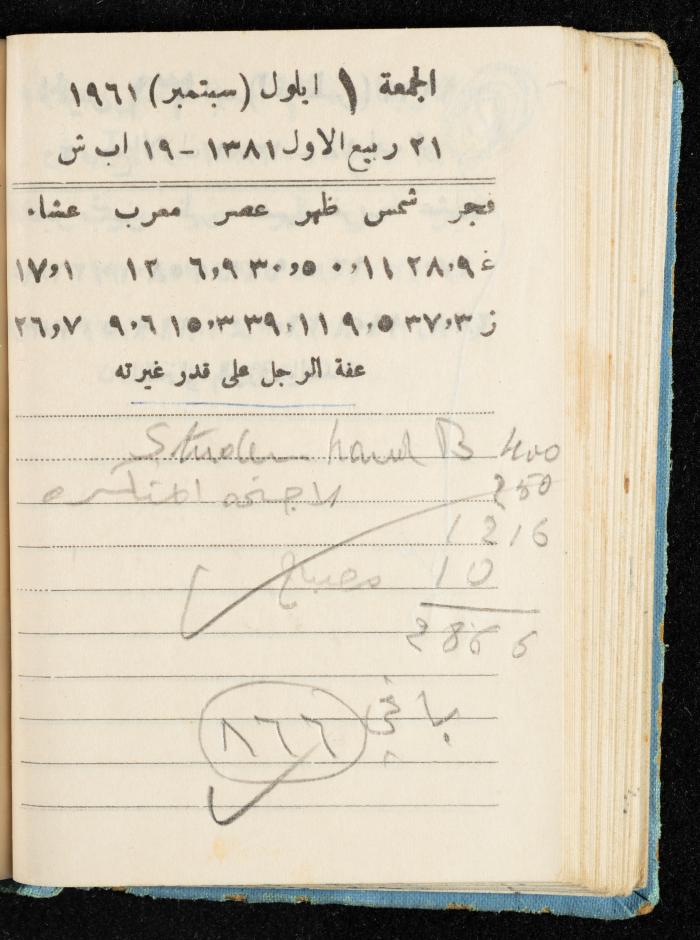 الجمعة ١ ايلول (سبتمبر) ١٩٦١
٢١ ربيع الاول ١٣٨١ - ١٩ اب ش
فجر شمس ظهر عصر مغرب عشاء
غ ٢٨،٩ ١١،٠ ٣٠،٥ ٦،٩ ١٢ ١٧،١
ز ٣٧،٣ ٩،٥ ٣٩،١١ ١٥،٣ ٩،٦ ٢٦،٧
عفة الرجل على قدر غيرته
hand B 400
250
1216
10 مصباح
2866
باقي ٨٦٦